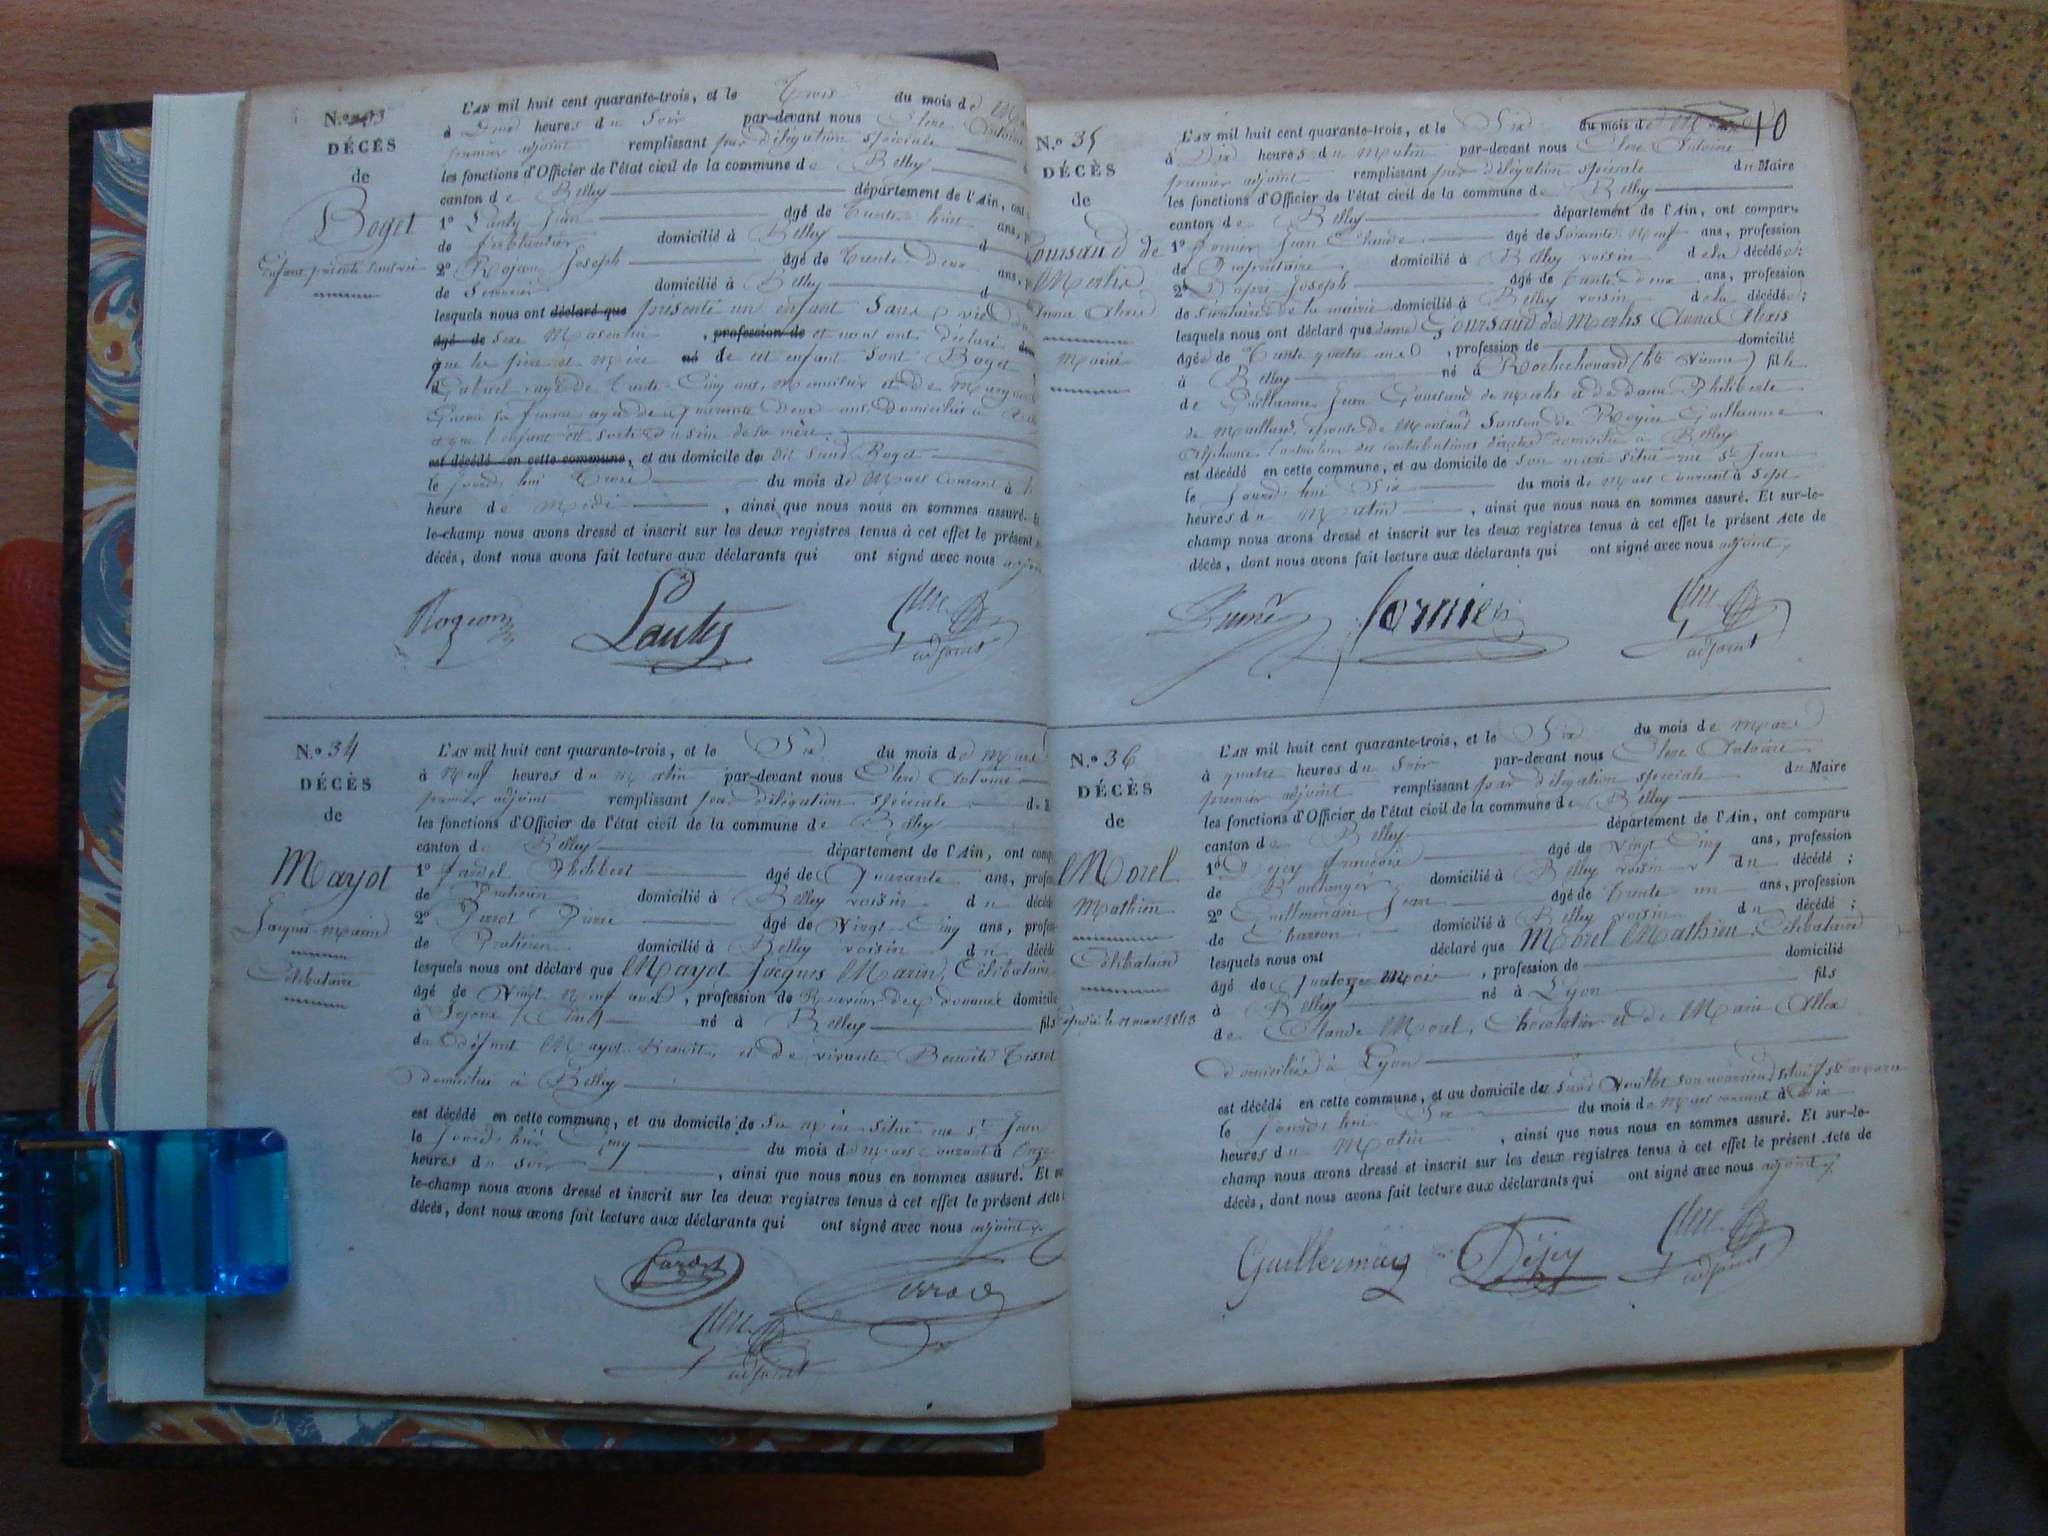 N.º 33
DÉCÈS
de
Boget
Enfant présenté sans vie
L'AN mil huit cent quarante-trois, et le Trois du mois de
à Deux heures du Soir par-devant nous Clerc Antoine
premier adjoint remplissant par délégation spéciale
les fonctions d'Officier de l'état civil de la commune de Belley
canton de Belley département de l'Ain, ont
1º Lauty Jean agé de Trente huit ans,
de ferblantier domicilié à Belley
2º Rojon Joseph agé de Trente deux ans,
de Serrurier domicilié à Belley
lesquels nous ont déclaré que présenté un enfant Sans vie du
agé de Sexe Masculin, profession de et nous ont déclaré
que les père et mère né de cet enfant sont Boget
Gabriel agé de Trente Cinq ans, Menuisier et de
sa femme agée de quarante Deux ans, Domiciliés à
et que l'enfant est sorti du sein de sa mère.
est décédé en cette commune, et au domicile du dit Sieur Boget
le jourd'hui Trois du mois de Mars Courant à
heure de Midi, ainsi que nous nous en sommes assuré. Et
le-champ nous avons dressé et inscrit sur les deux registres tenus à cet effet le présent
décès, dont nous avons fait lecture aux déclarants qui ont signé avec nous adjoint
Lauty
adjoint
N.º 34
DÉCÈS
de
Mayot
Jacques Marin
Célibataire
L'AN mil huit cent quarante-trois, et le Six du mois de Mars
à Neuf heures du Matin par-devant nous Clerc Antoine
premier adjoint remplissant par délégation spéciale
les fonctions d'Officier de l'état civil de la commune de Belley
canton de Belley département de l'Ain, ont
1º Fardel Philibert agé de Quarante ans,
de Praticien domicilié à Belley voisin du décédé
2º Pierre agé de Vingt Cinq ans,
de Praticien domicilié à Belley voisin du décédé
lesquels nous ont déclaré que Mayot Jacques Marin, Célibataire
agé de Vingt Neuf ans, profession de Receveur des Douanes domicilié
à né à Belley fils
de défunt Mayot Benoit, et de vivante Benoite Tissot
domiciliée à Belley
est décédé en cette commune, et au domicile de sa mère situé rue St Jean
le jourd'hier Cinq du mois de Mars courant à Onze
heures du Soir, ainsi que nous nous en sommes assuré. Et
le-champ nous avons dressé et inscrit sur les deux registres tenus à cet effet le présent Acte
décès, dont nous avons fait lecture aux déclarants qui ont signé avec nous adjoint
adjoint
10
N.º 35
DÉCÈS
de
Coursaud de
Merlis
Anna Alexis
Mariée
L'AN mil huit cent quarante-trois, et le Six du mois de Mars
à Dix heures du Matin par-devant nous Clerc Antoine
premier adjoint remplissant par délégation spéciale du Maire
les fonctions d'Officier de l'état civil de la commune de Belley
canton de Belley département de l'Ain, ont comparu
1º Fornier Jean Claude agé de Soixante Neuf ans, profession
de Propriétaire domicilié à Belley voisin de la décédée;
2º Joseph agé de Trente deux ans, profession
de Secrétaire de la mairie domicilié à Belley voisin de la décédée;
lesquels nous ont déclaré que dame Goursaud de Merlis Anna Alexis
agée de Trente quatre ans, profession de domicilié
à Belley né à Rochechouard (hte Vienne) fille
de Guillaume Jean Goursaud de Merlis et de dame Philiberte
de Maillard, épouse de Monsieur Sanson de Royère Guillaume
Alphonse Controleur des contributions directes domicilié à Belley
est décédé en cette commune, et au domicile de son mari situé rue St Jean
le jourd'hui Six du mois de Mars courant à Sept
heures du Matin, ainsi que nous nous en sommes assuré. Et sur-le-
champ nous avons dressé et inscrit sur les deux registres tenus à cet effet le présent Acte de
décès, dont nous avons fait lecture aux déclarants qui ont signé avec nous adjoint
fornier
adjoint
N.º 36
DÉCÈS
de
Morel
Mathieu
Célibataire
L'AN mil huit cent quarante-trois, et le Six du mois de Mars
à quatre heures du Soir par-devant nous Clerc Antoine
premier adjoint remplissant par délégation spéciale du Maire
les fonctions d'Officier de l'état civil de la commune de Belley
canton de Belley département de l'Ain, ont comparu
1º Dejey françois agé de Vingt Cinq ans, profession
de Boulanger domicilié à Belley voisin du décédé;
2º Guillermain Jean agé de Trente un ans, profession
de Charron domicilié à Belley voisin du décédé;
lesquels nous ont déclaré que Morel Mathieu, Célibataire
agé de quatorze Mois, profession de domicilié
à Belley né à Lyon fils
de Claude Morel, Chocolatier et de Marie Allex
domiciliés à Lyon
est décédé en cette commune, et au domicile de son nourricier
le jourd'hui Six du mois de Mars courant à Dix
heures du Matin, ainsi que nous nous en sommes assuré. Et sur-le-
champ nous avons dressé et inscrit sur les deux registres tenus à cet effet le présent Acte de
décès, dont nous avons fait lecture aux déclarants qui ont signé avec nous adjoint
Guillermain Déjey
adjoint